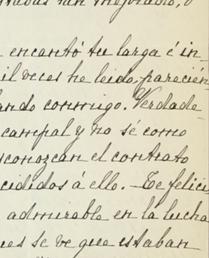 encantó tu larga é in-
il veces he leido, parecién
ando conmigo. Verdade
campal y no sé como
sconozcan el contrato
cididos á ello. Te felici
admirable en la lucha
ues se ve que estaban